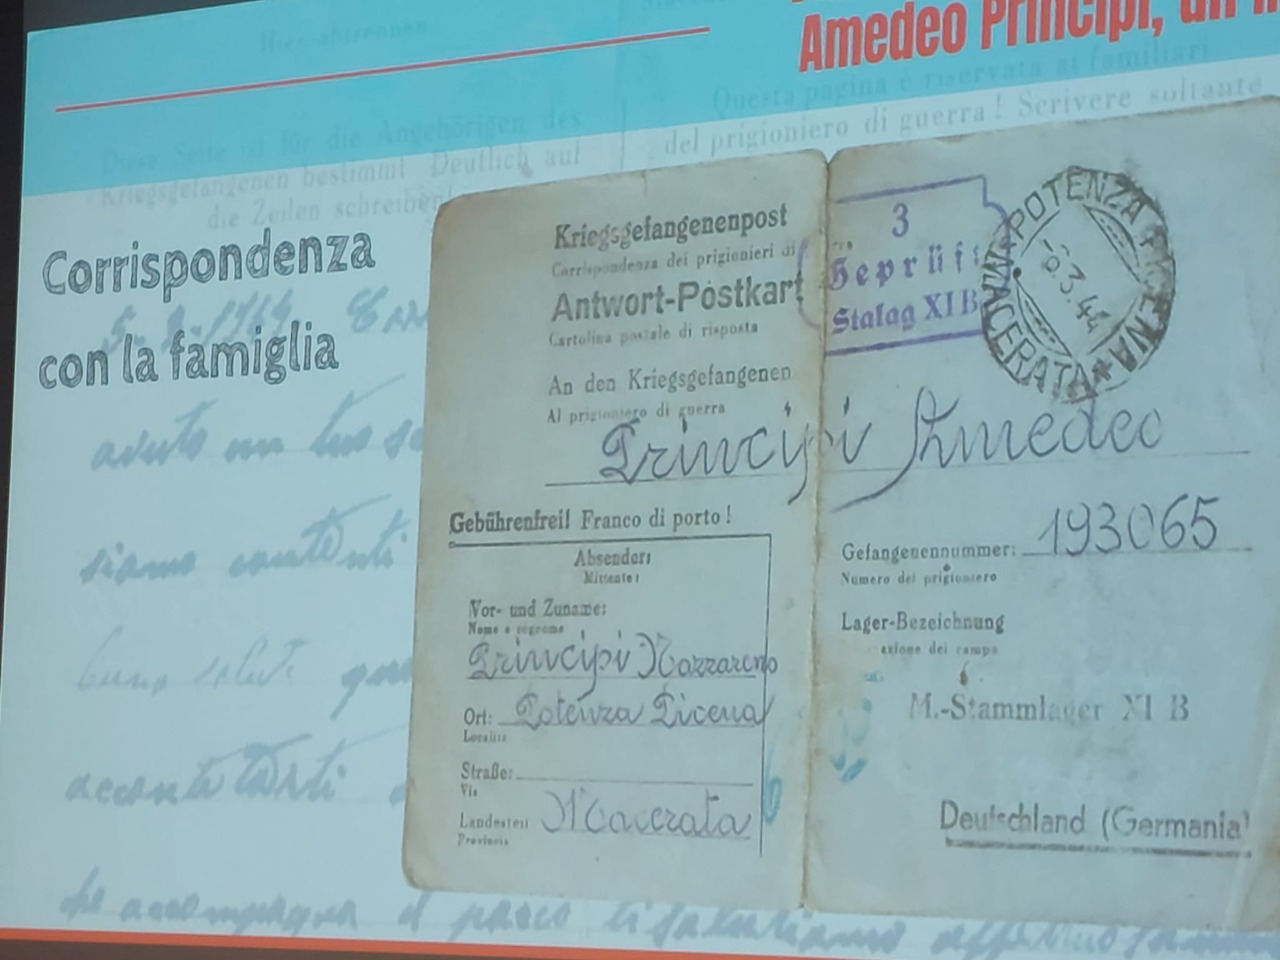 Amedeo Principi, un
Hier abtrennen
Diese Seite ist für die Angehörigen des
Kriegsgefangenen bestimmt Deutlich auf
die Zeilen schreiben
Questa pagina è riservata ai familiari
del prigioniero di guerra! Scrivere soltanto
Corrispondenza
con la famiglia
avuto un tuo
siamo contenti
accontentarti
che accompagna il pacco ti salutiamo
Kriegsgefangenenpost
Corrispondenza dei prigionieri di
Antwort-Postkart
Cartolina postale di risposta
An den Kriegsgefangenen
Al prigioniero di guerra
Principi Amedeo
3
Geprüft
Stalag XI B
POTENZA PICENA
MACERATA
3.44
Gebührenfrei! Franco di porto!
Absender:
Mittente:
Vor- und Zuname:
Nome e cognome
Principi Nazzareno
Ort: Potenza Picena
Località
Straße:
Via
Landesteil Macerata
Provincia
Gefangenennummer: 193065
Numero del prigioniero
Lager-Bezeichnung
azione del campo
M.-Stammlager XI B
Deutschland (Germania)